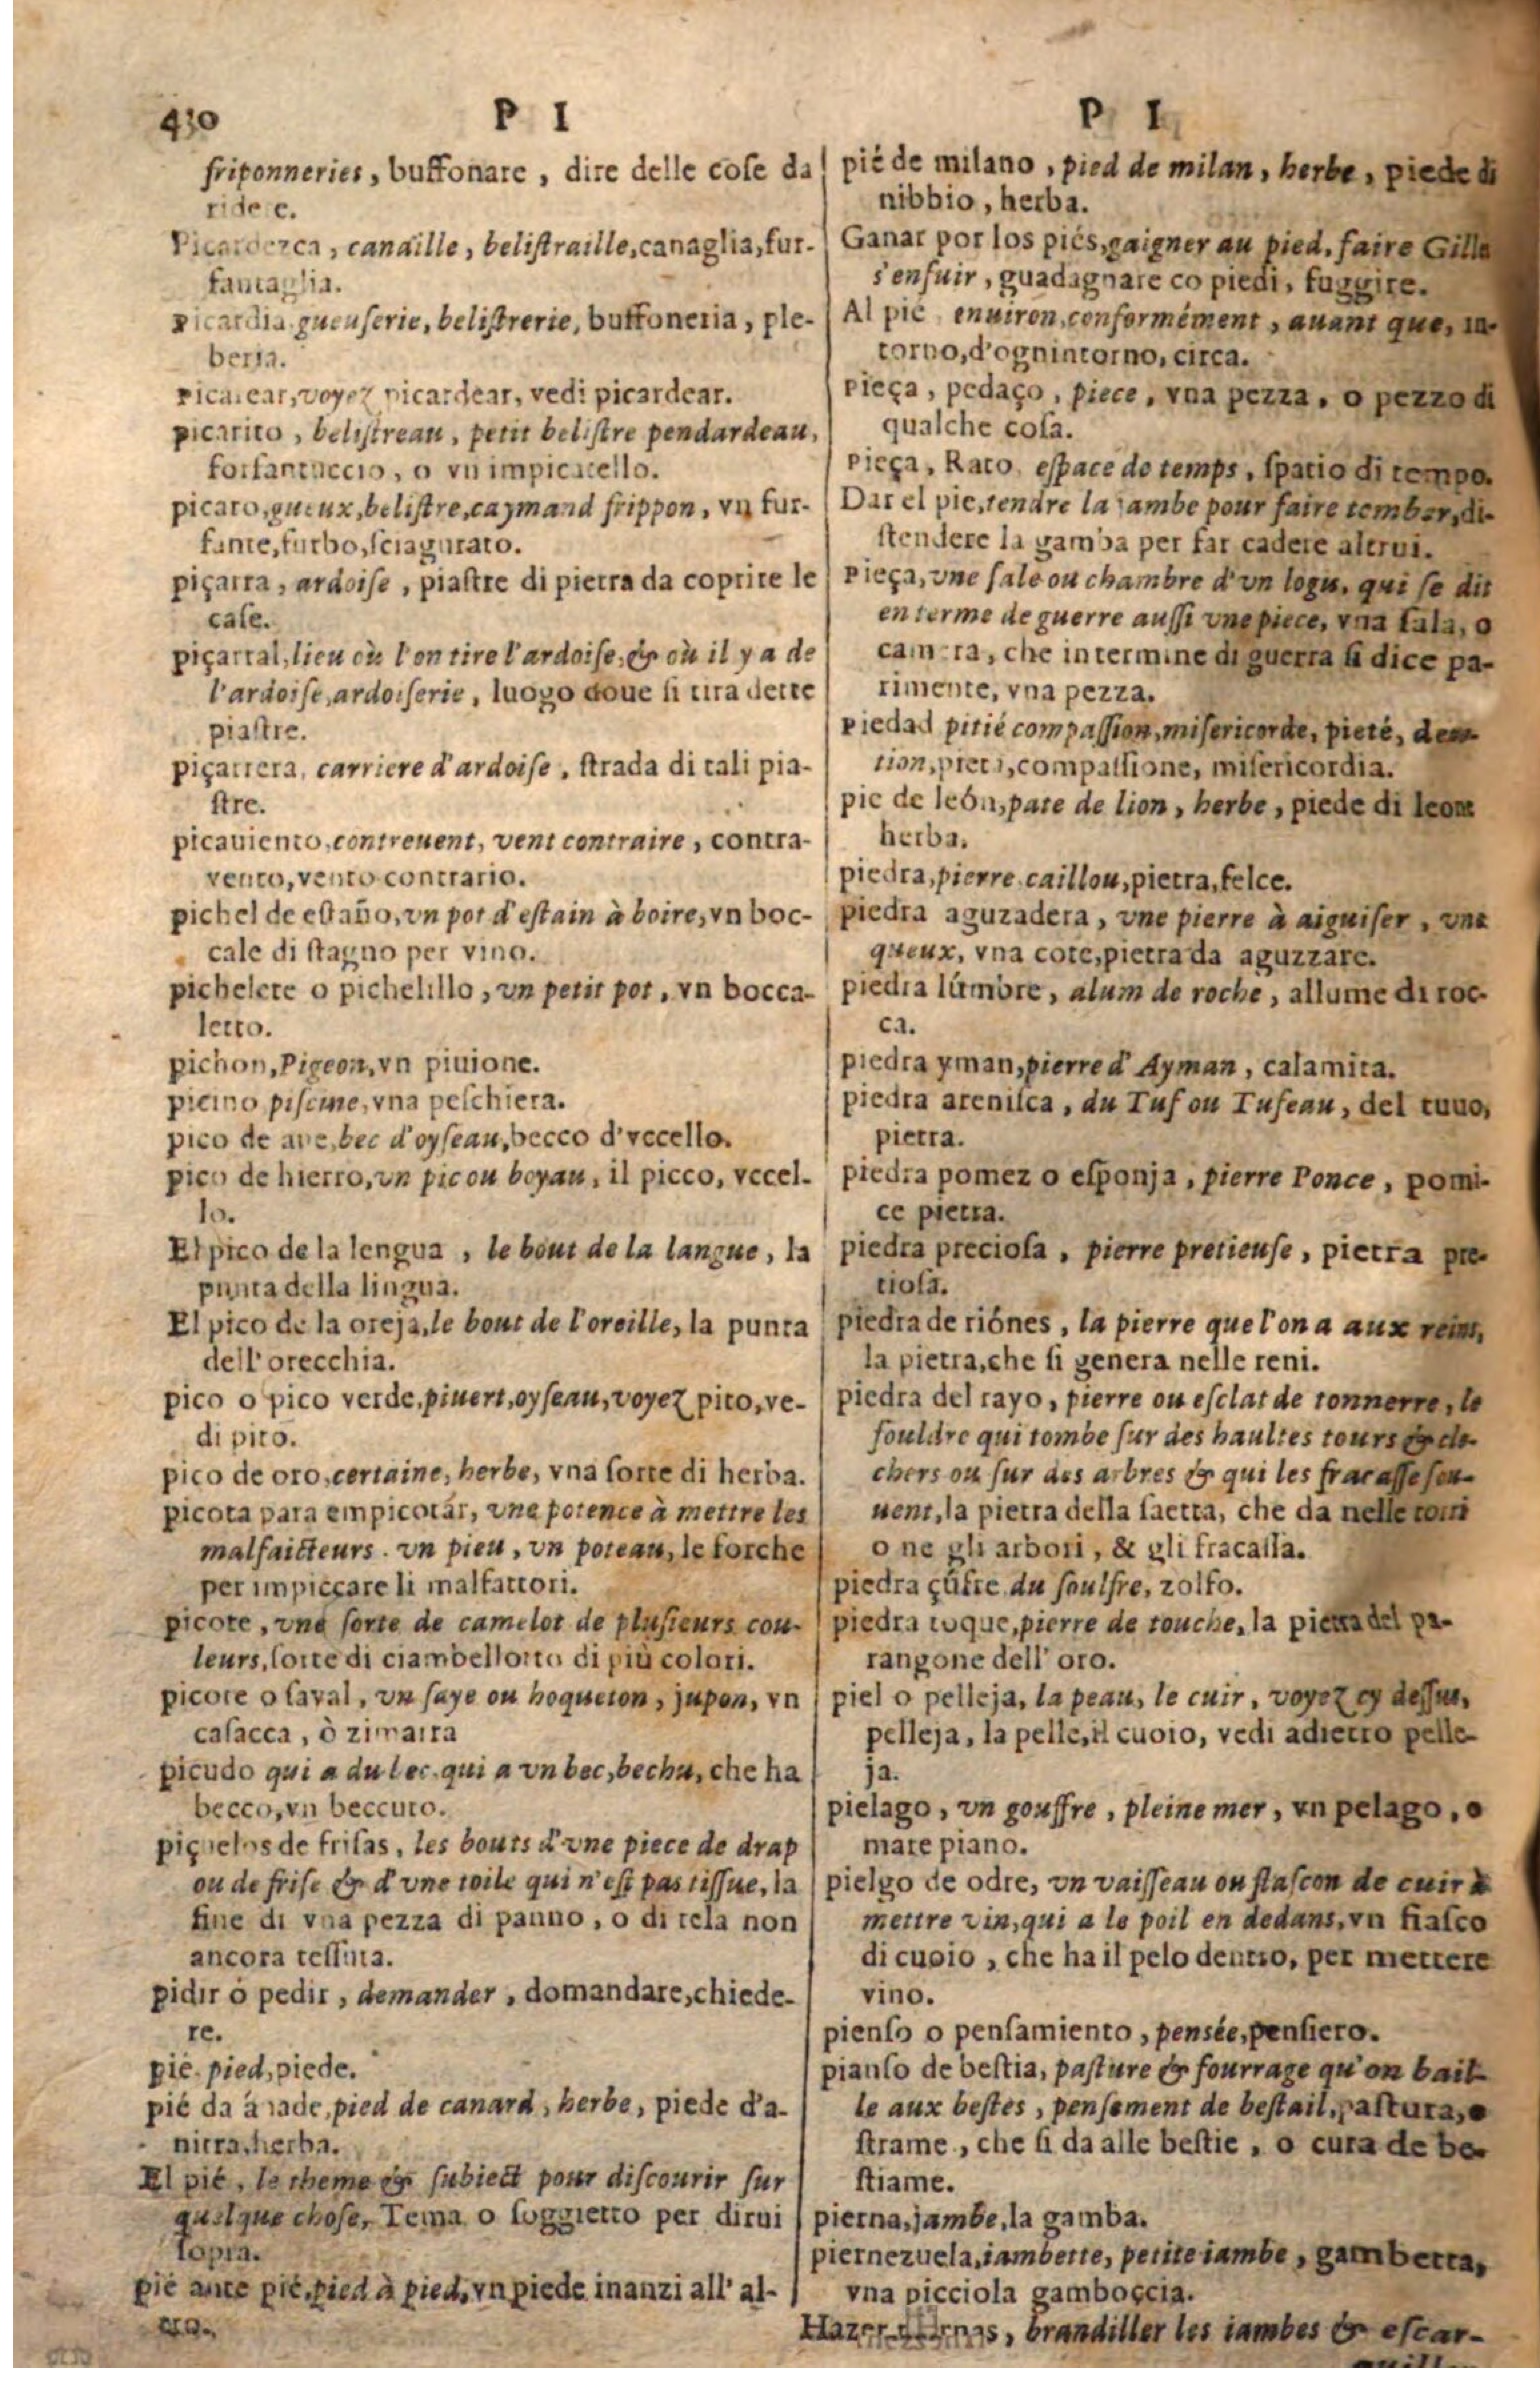 430 P I
friponneries, buffonare, dire delle cose da
ridere.
Picardezca, canaille, beliſtraille, canaglia, fur-
fantaglia.
picardia gueuſerie, beliſtrerie, buffoneria, ple-
beria.
picarear, voyez picardear, vedi picardear.
picarito, beliſtreau, petit beliſtre pendardeau,
forfantuccio, o vn impicatello.
picaro, gueux, beliſtre, caymand frippon, vn fur-
fante, furbo, ſciagurato.
piçarra, ardoiſe, piaſtre di pietra da coprire le
caſe.
piçarral, lieu où l'on tire l'ardoiſe, & où il y a de
l'ardoiſe, ardoiſerie, luogo doue ſi tira dette
piaſtre.
piçarrera, carriere d'ardoiſe, ſtrada di tali pia-
ſtre.
picauiento, contreuent, vent contraire, contra-
vento, vento contrario.
pichel de eſtaño, vn pot d'eſtain à boire, vn boc-
cale di ſtagno per vino.
pichelete o pichelillo, vn petit pot, vn bocca-
letto.
pichon, Pigeon, vn piuione.
picino piſcine, vna peſchiera.
pico de ave, bec d'oyſeau, becco d'vccello.
pico de hierro, vn pic ou boyau, il picco, vccel-
lo.
El pico de la lengua, le bout de la langue, la
punta della lingua.
El pico de la oreja, le bout de l'oreille, la punta
dell' orecchia.
pico o pico verde, piuert, oyſeau, voyez pito, ve-
di pito.
pico de oro, certaine, herbe, vna ſorte di herba.
picota para empicotár, vne potence à mettre les
malfaicteurs. vn pieu, vn poteau, le forche
per impiccare li malfattori.
picote, vne ſorte de camelot de pluſieurs cou-
leurs, ſorte di ciambellotto di più colori.
picote o ſayal, vn ſaye ou hoqueton, jupon, vn
caſacca, ò zimarra
picudo qui a du bec, qui a vn bec, bechu, che ha
becco, vn beccuto.
piçuelos de friſas, les bouts d'vne piece de drap
ou de friſe & d'vne toile qui n'eſt pas tiſſue, la
fine di vna pezza di panno, o di tela non
ancora teſſuta.
pidir ó pedir, demander, domandare, chiede-
re.
pié. pied, piede.
pié da ánade, pied de canard, herbe, piede d'a-
nitra, herba.
El pié, le theme & ſubiect pour diſcourir ſur
quelque choſe, Tema o ſoggietto per dirui
ſopra.
pié ante pié, pied à pied, vn piede inanzi all' al-
tro.
P I
pié de milano, pied de milan, herbe, piede di
nibbio, herba.
Ganar por los piés, gaigner au pied, faire Gille
s'enfuir, guadagnare co piedi, fuggire.
Al pie, enuiron, conformément, auant que, in-
torno, d'ognintorno, circa.
pieça, pedaço, piece, vna pezza, o pezzo di
qualche coſa.
pieça, Rato, eſpace de temps, ſpatio di tempo.
Dar el pie, tendre la jambe pour faire tomber, di-
ſtendere la gamba per far cadere altrui.
pieça, vne ſale ou chambre d'vn logis, qui ſe dit
en terme de guerre auſſi vne piece, vna ſala, o
camera, che in termine di guerra ſi dice pa-
rimente, vna pezza.
piedad pitié compaſſion, miſericorde, pieté, deuo-
tion, pietà, compaſſione, miſericordia.
pie de león, pate de lion, herbe, piede di leone
herba.
piedra, pierre caillou, pietra, ſelce.
piedra aguzadera, vne pierre à aiguiſer, vne
queux, vna cote, pietra da aguzzare.
piedra lúmbre, alum de roche, allume di roc-
ca.
piedra yman, pierre d'Ayman, calamita.
piedra areniſca, du Tuf ou Tufeau, del tuuo,
pietra.
piedra pomez o eſponja, pierre Ponce, pomi-
ce pietra.
piedra precioſa, pierre pretieuſe, pietra pre-
tioſa.
piedra de riónes, la pierre que l'on a aux reins,
la pietra, che ſi genera nelle reni.
piedra del rayo, pierre ou eſclat de tonnerre, le
fouldre qui tombe ſur des haultes tours & clo-
chers ou ſur des arbres & qui les fracaſſe ſou-
uent, la pietra della ſaetta, che da nelle torri
o ne gli arbori, & gli fracaſſa.
piedra çúfre du ſoulfre, zolfo.
piedra toque, pierre de touche, la pietra del pa-
rangone dell' oro.
piel o pelleja, la peau, le cuir, voyez cy deſſus,
pelleja, la pelle, il cuoio, vedi adietro pelle-
ja.
pielago, vn gouffre, pleine mer, vn pelago, o
mare piano.
pielgo de odre, vn vaiſſeau ou flaſcon de cuir à
mettre vin, qui a le poil en dedans, vn fiaſco
di cuoio, che ha il pelo dentro, per mettere
vino.
pienſo o penſamiento, penſée, penſiero.
pianſo de beſtia, paſture & fourrage qu'on bail-
le aux beſtes, penſement de beſtail, paſtura, o
ſtrame, che ſi da alle beſtie, o cura de be-
ſtiame.
pierna, jambe, la gamba.
piernezuela, iambette, petite iambe, gambetta,
vna picciola gamboccia.
Hazer piernas, brandiller les iambes & eſcar-